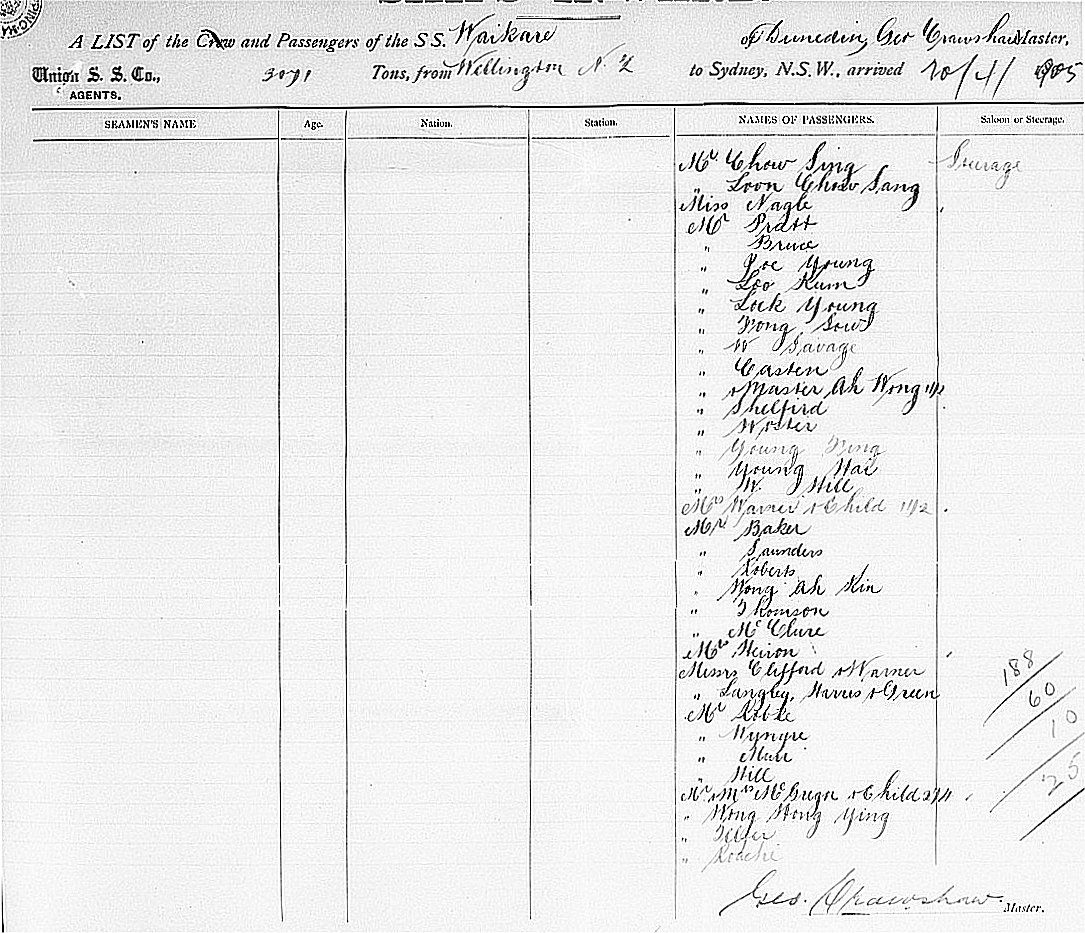 A LIST of the Crew and Passengers of the S.S. Waikare of Dunedin, Geo Crawshaw Master,
Union S. S. Co., 3071 Tons, from Wellington N. Z to Sydney, N.S.W., arrived 20/4/1905
AGENTS.
SEAMEN'S NAME Age. Nation. Station. NAMES OF PASSENGERS. Saloon or Steerage.
Mr Chow Sing Steerage
" Loon Chow Sang
Miss Nagle
Mr Pratt
" Bruce
" Joe Young
" Loo Kum
" Lock Young
" Fong Sow
" W Savage
" Casten
" & Master Ah Wong 1 1/2
" Shelfird
" Woster
" Young
" Young Wai
" W. Hill
Mrs Warner & Child 1 1/2
Mr Baker
" Saunders
" Roberts
" Wong Ah Kin
" Thomson
" McClure
Mrs Heiron
Messrs Clifford & Warner 188
" Langley, Harris & Green 60
Mr 10
" Wyngre
" Muir
" Hill 25
Mr & Mrs McGregor & Child 2 1/4
" Wong Hong Ying
" Telfer
" Roache
Geo. Crawshaw Master.